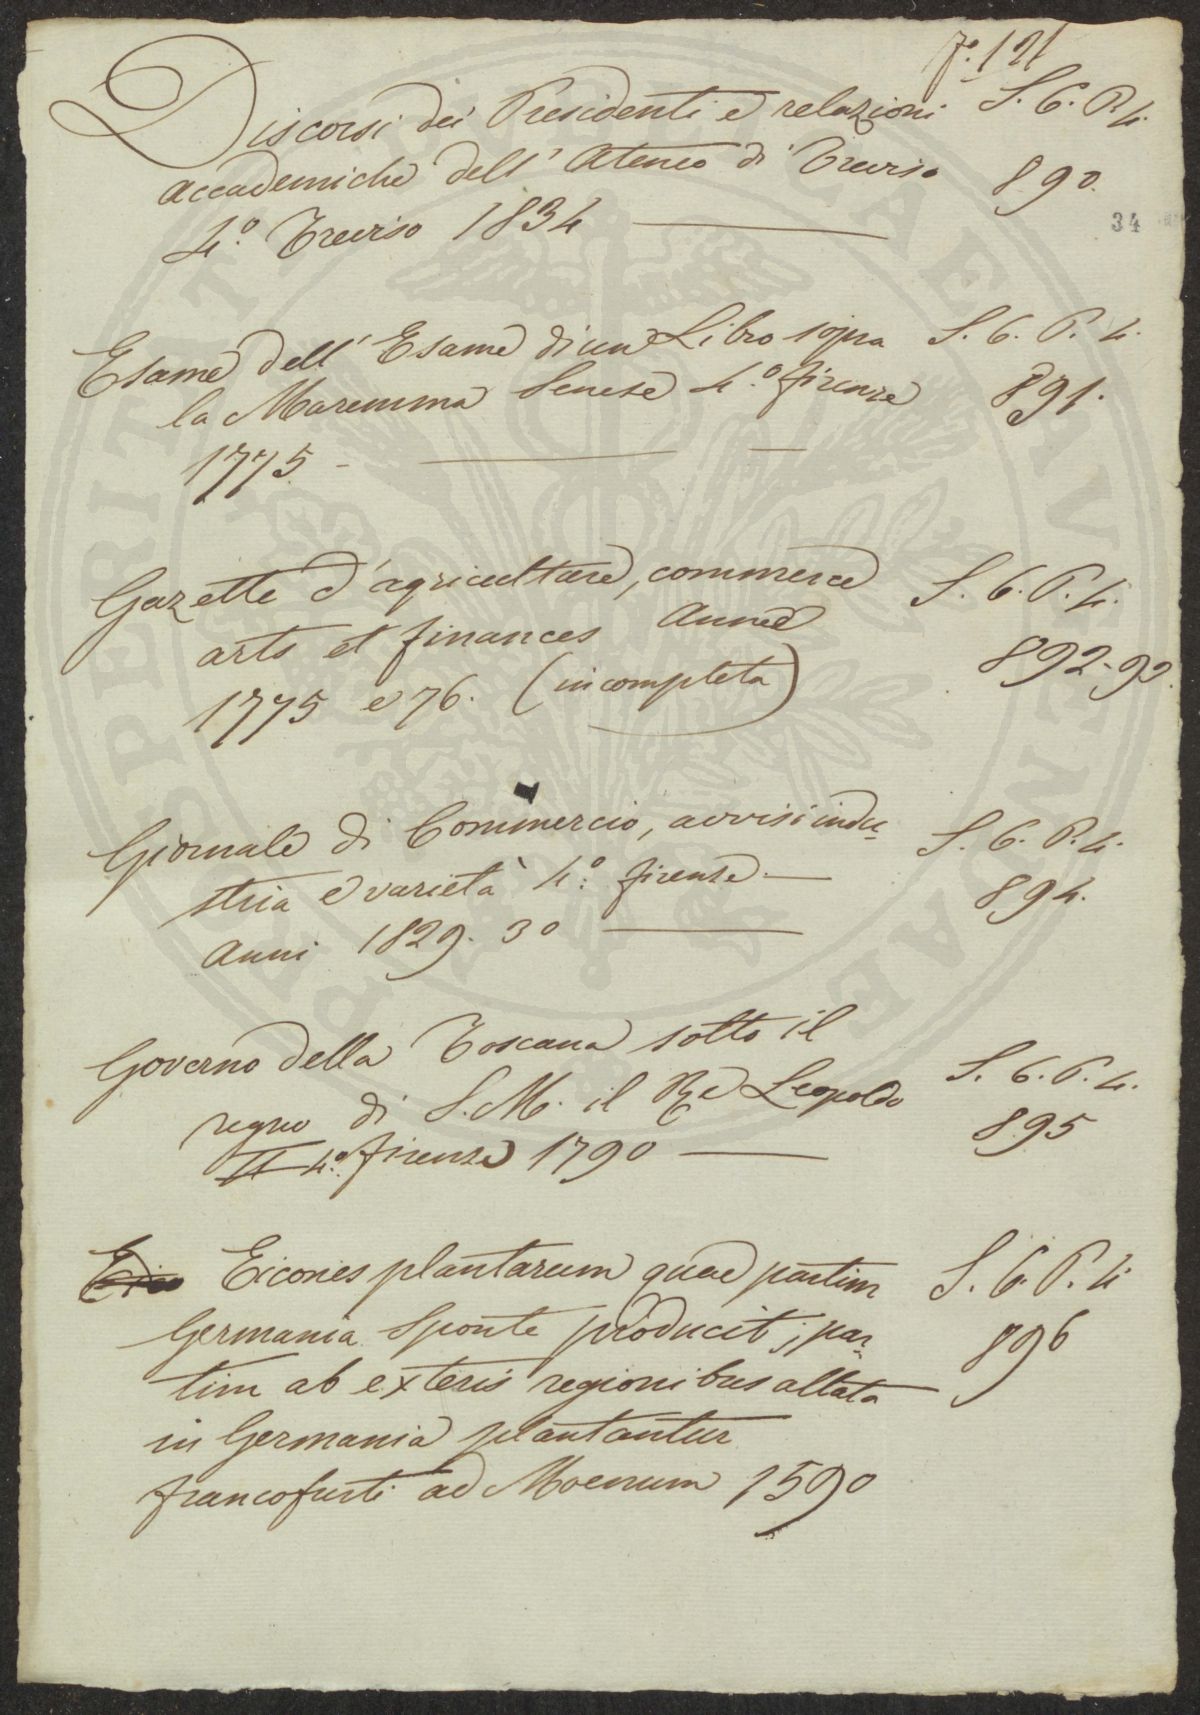 fo. 121
Discorsi dei Presidenti e relazioni S. 6. P. 4.
accademiche dell' Ateneo di Treviso 890.
4.o Treviso 1834
34
Esame dell' Esame di un Libro sopra S. 6. P. 4.
la Maremma Senese 4.o firenze 891.
1775 -
Gazette d'agriculture, commerce S. 6. P. 4.
arts et finances Année 892-93.
1775 e 76. (incompleta)
Giornale di Commercio, avvisi indu- S. 6. P. 4.
stria e varietà 4.o firenze 894.
Anni 1829. 30
Governo della Toscana sotto il S. 6. P. 4.
regno di S. M. il Re Leopoldo 895
II 4.o firenze 1790
Eicones plantarum quae partim S. 6. P. 4
Germania sponte producit, par- 896
tim ab exteris regionibus allata
in Germania plantantur
francofurti ad Moenum 1590